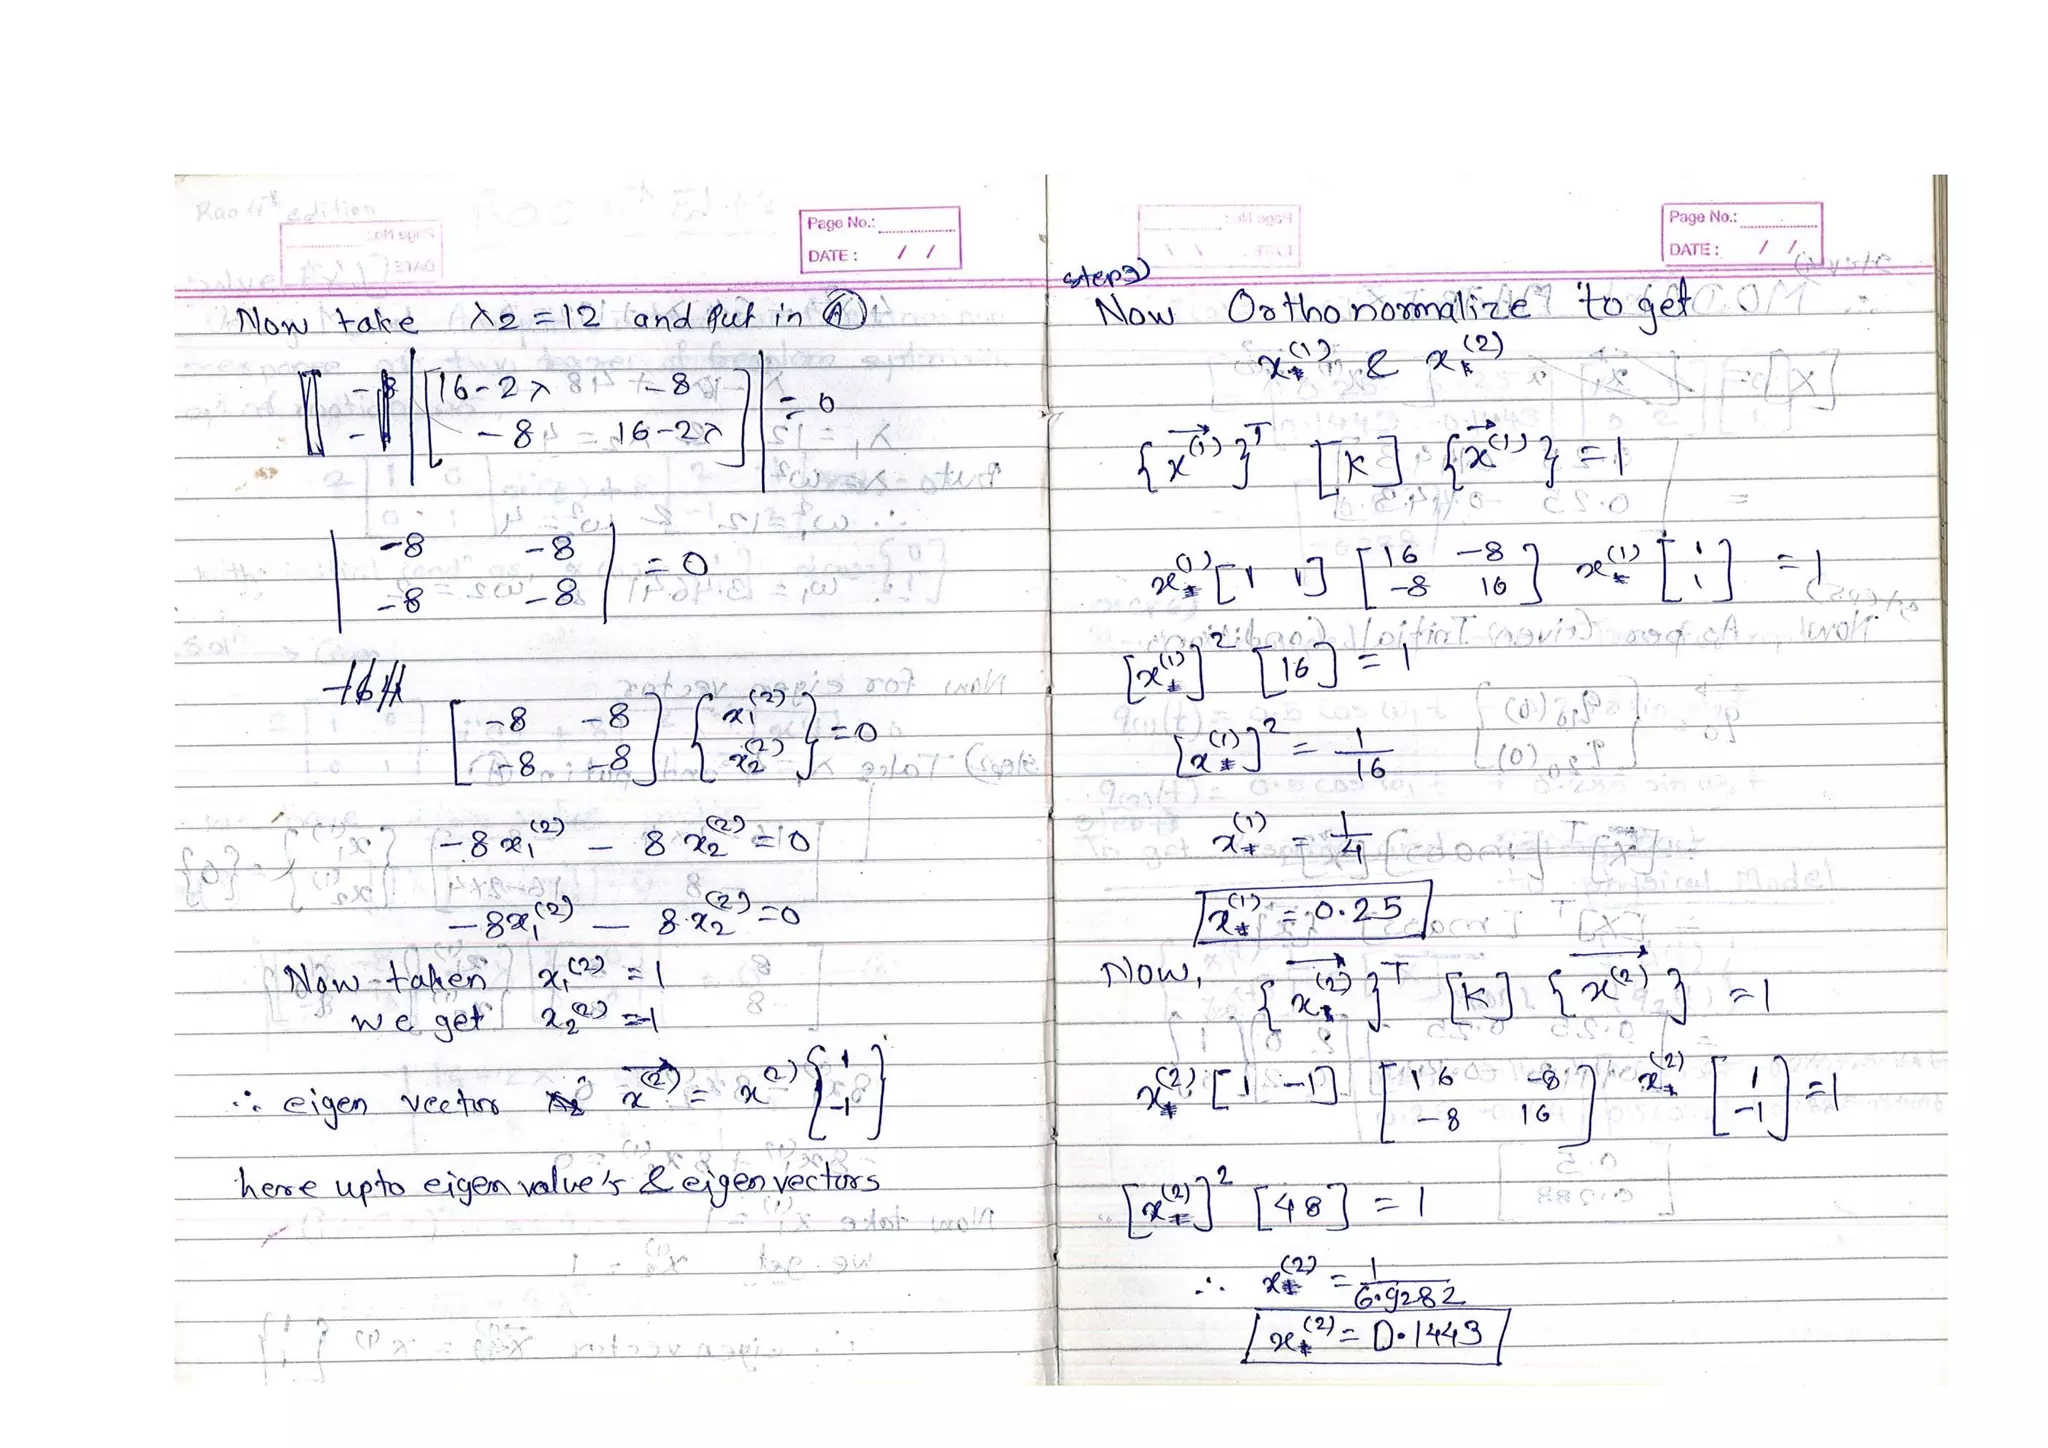 Page No.:
DATE : / /
Now take λ2 = 12 and put in Ⓐ
| [ 16-2λ -8
-8 16-2λ ] | = 0
| -8 -8
-8 -8 | = 0
[ -8 -8
-8 -8 ] { x1(2)
x2(2) } = 0
-8 x1(2) - 8 x2(2) = 0
-8x1(2) - 8 x2(2) = 0
Now taken x1(2) = 1
we get x2(2) = -1
∴ eigen vector x→(2) = x(2) { 1
-1 }
here upto eigen value's & eigen vectors
Page No.:
DATE : / /
step3)
Now Orthonormalize to get
x*(1) & x*(2)
{x→(1)}T [K] {x→(1)} = 1
x*(1) [1 1] [ 16 -8
-8 16 ] x*(1) [ 1
1 ] = 1
[x*(1)]2 [16] = 1
[x*(1)]2 = 1/16
x*(1) = 1/4
x*(1) = 0.25
Now, {x→(2)}T [K] {x→(2)} = 1
x*(2) [1 -1] [ 16 -8
-8 16 ] x*(2) [ 1
-1 ] = 1
[x*(2)]2 [48] = 1
∴ x*(2) = 1/6.9282
x*(2) = 0.1443